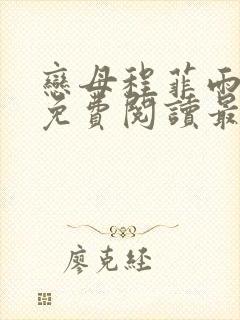 戀母程菲雨
免費閱讀最
廖克經